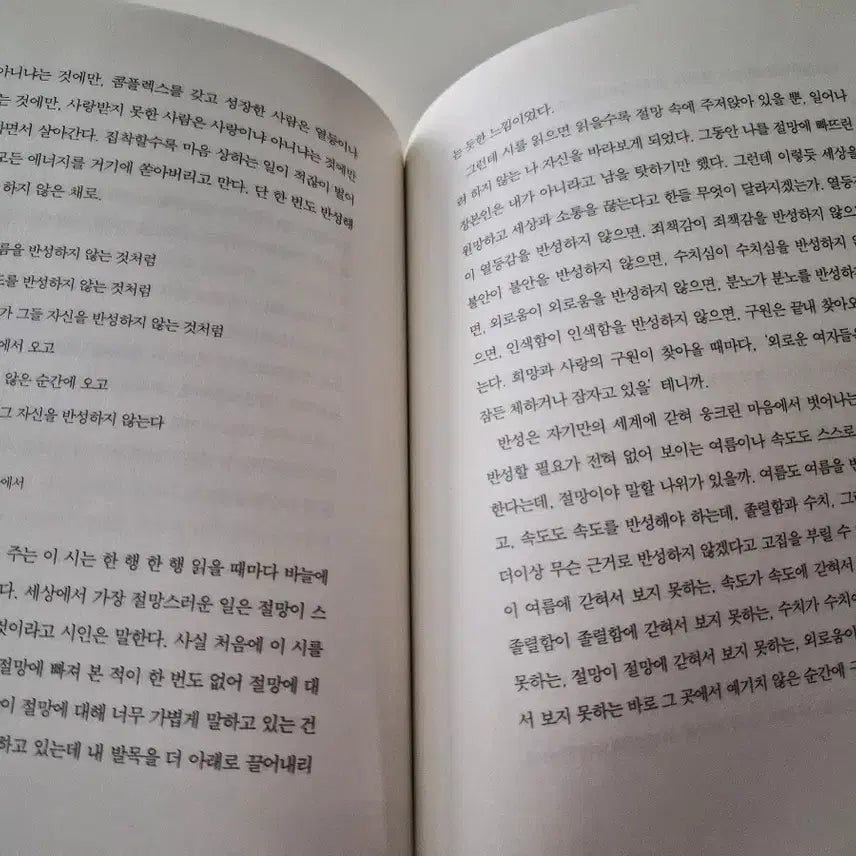 아니냐는 것에만, 콤플렉스를 갖고 성장한 사람은 열등이냐
는 것에만, 사랑받지 못한 사람은 사랑이냐 아니냐는 것에만
하면서 살아간다. 집착할수록 마음 상하는 일이 적잖이 벌어
모든 에너지를 거기에 쏟아버리고 만다. 단 한 번도 반성해
하지 않은 채로.
름을 반성하지 않는 것처럼
도를 반성하지 않는 것처럼
가 그들 자신을 반성하지 않는 것처럼
에서 오고
않은 순간에 오고
그 자신을 반성하지 않는다
에서
주는 이 시는 한 행 한 행 읽을 때마다 바늘에
다. 세상에서 가장 절망스러운 일은 절망이 스
것이라고 시인은 말한다. 사실 처음에 이 시를
절망에 빠져 본 적이 한 번도 없어 절망에 대
이 절망에 대해 너무 가볍게 말하고 있는 건
하고 있는데 내 발목을 더 아래로 끌어내리
는 못한 느낌이었다.
그런데 시를 읽으면 읽을수록 절망 속에 주저앉아 있을 뿐, 일어나
려 하지 않는 나 자신을 바라보게 되었다. 그동안 나를 절망에 빠뜨린
장본인은 내가 아니라고 남을 탓하기만 했다. 그런데 이렇듯 세상을
원망하고 세상과 소통을 끊는다고 한들 무엇이 달라지겠는가. 열등
이 열등감을 반성하지 않으면, 죄책감이 죄책감을 반성하지 않으
불안이 불안을 반성하지 않으면, 수치심이 수치심을 반성하지 않
면, 외로움이 외로움을 반성하지 않으면, 분노가 분노를 반성하지
으면, 인색함이 인색함을 반성하지 않으면, 구원은 끝내 찾아오
는다. 희망과 사랑의 구원이 찾아올 때마다, '외로운 여자들은
잠든 체하거나 잠자고 있을' 테니까.
반성은 자기만의 세계에 갇혀 웅크린 마음에서 벗어나는
반성할 필요가 전혀 없어 보이는 여름이나 속도도 스스로
한다는데, 절망이야 말할 나위가 있을까. 여름도 여름을 반
고, 속도도 속도를 반성해야 하는데, 졸렬함과 수치, 그
더이상 무슨 근거로 반성하지 않겠다고 고집을 부릴 수
이 여름에 갇혀서 보지 못하는, 속도가 속도에 갇혀서
졸렬함이 졸렬함에 갇혀서 보지 못하는, 수치가 수치에
못하는, 절망이 절망에 갇혀서 보지 못하는, 외로움이
서 보지 못하는 바로 그 곳에서 예기치 않은 순간에 구